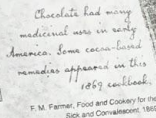 Chocolate had many
medicinal uses in early
America. Some cocoa-based
remedies appeared in this
1869 cookbook.
F. M. Farmer, Food and Cookery for the
Sick and Convalescent, 1869